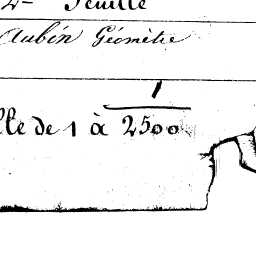 2- Feuille
Aubin Géomètre
1
lle de 1 à 2500